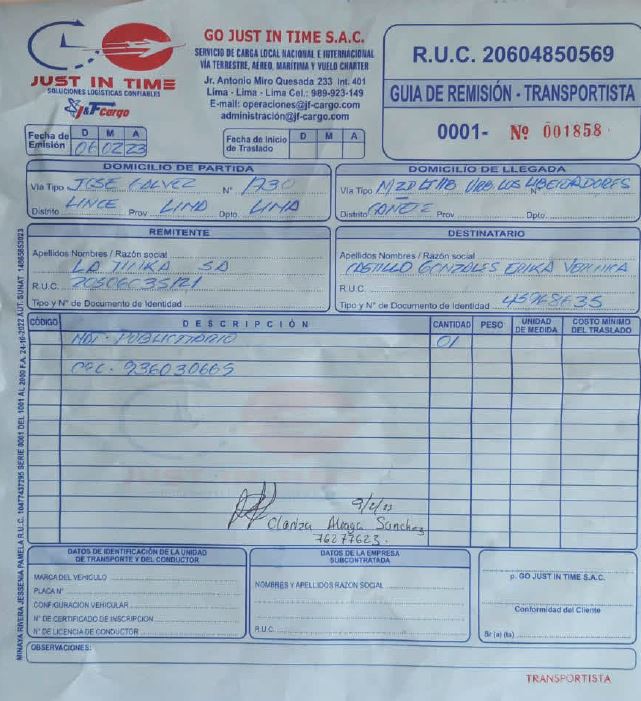 JUST IN TIME
SOLUCIONES LOGÍSTICAS CONFIABLES
J&F Cargo
GO JUST IN TIME S.A.C.
SERVICIO DE CARGA LOCAL NACIONAL E INTERNACIONAL
VÍA TERRESTRE, AEREO, MARÍTIMA Y VUELO CHARTER
Jr. Antonio Miro Quesada 233 Int. 401
Lima - Lima - Lima Cel.: 989-923-149
E-mail: operaciones@jf-cargo.com
administración@jf-cargo.com
R.U.C. 20604850569
GUIA DE REMISIÓN - TRANSPORTISTA
0001- Nº 001858
Fecha de Emisión D M A
06 02 23
Fecha de Inicio de Traslado D M A
DOMICILIO DE PARTIDA
Vía Tipo JOSE GALVEZ Nº 1730
Distrito LINCE Prov LIMA Dpto LIMA
DOMICILIO DE LLEGADA
Vía Tipo URB. LOS LIBERTADORES Nº
Distrito CAÑETE Prov Dpto.
REMITENTE
Apellidos Nombres / Razón social
LA TINKA SA
R.U.C. 20506035121
Tipo y N° de Documento de Identidad
DESTINATARIO
Apellidos Nombres / Razón social
CASTILLO GONZALES ERIKA VERONICA
R.U.C.
Tipo y N° de Documento de Identidad 45968635
CÓDIGO DESCRIPCIÓN CANTIDAD PESO UNIDAD DE MEDIDA COSTO MÍNIMO DEL TRASLADO
PUBLICITARIO 01
936030665
9/2/23
Clariza Aliaga Sanchez
76277623
DATOS DE IDENTIFICACIÓN DE LA UNIDAD DE TRANSPORTE Y DEL CONDUCTOR
MARCA DEL VEHICULO
PLACA N°
CONFIGURACION VEHICULAR
N° DE CERTIFICADO DE INSCRIPCION
N° DE LICENCIA DE CONDUCTOR
DATOS DE LA EMPRESA SUBCONTRATADA
NOMBRES Y APELLIDOS RAZON SOCIAL
R.U.C.
p. GO JUST IN TIME S.A.C.
Conformidad del Cliente
Sr (a) (ta)
OBSERVACIONES:
TRANSPORTISTA
MINAYA RIVERA JESSENIA PAMELA R.U.C. 10477437295 SERIE 0001 DEL 1001 AL 2000 F.A. 24-10-2022 AUT. SUNAT 14865853023